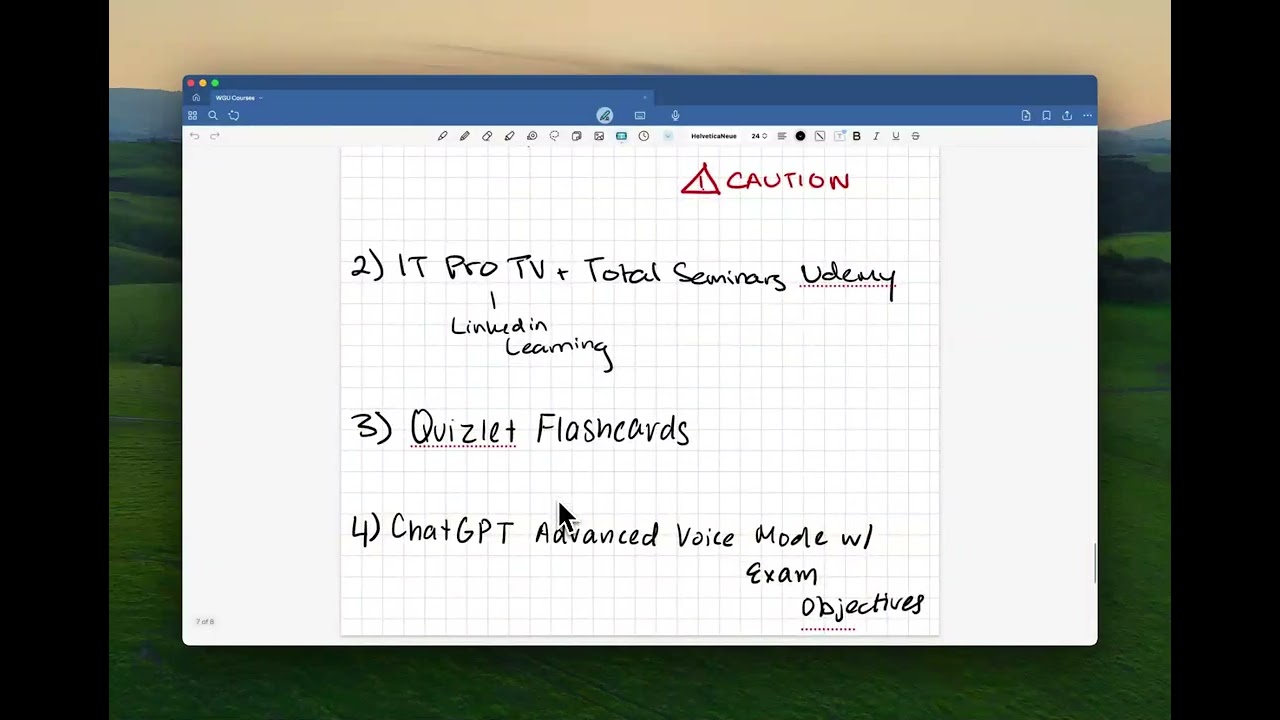 WGU Courses
HelveticaNeue 24 B I U S
⚠ CAUTION
2) IT Pro TV + Total Seminars Udemy
Linkedin
Learning
3) Quizlet Flashcards
4) ChatGPT Advanced Voice Mode w/
Exam
Objectives
7 of 8